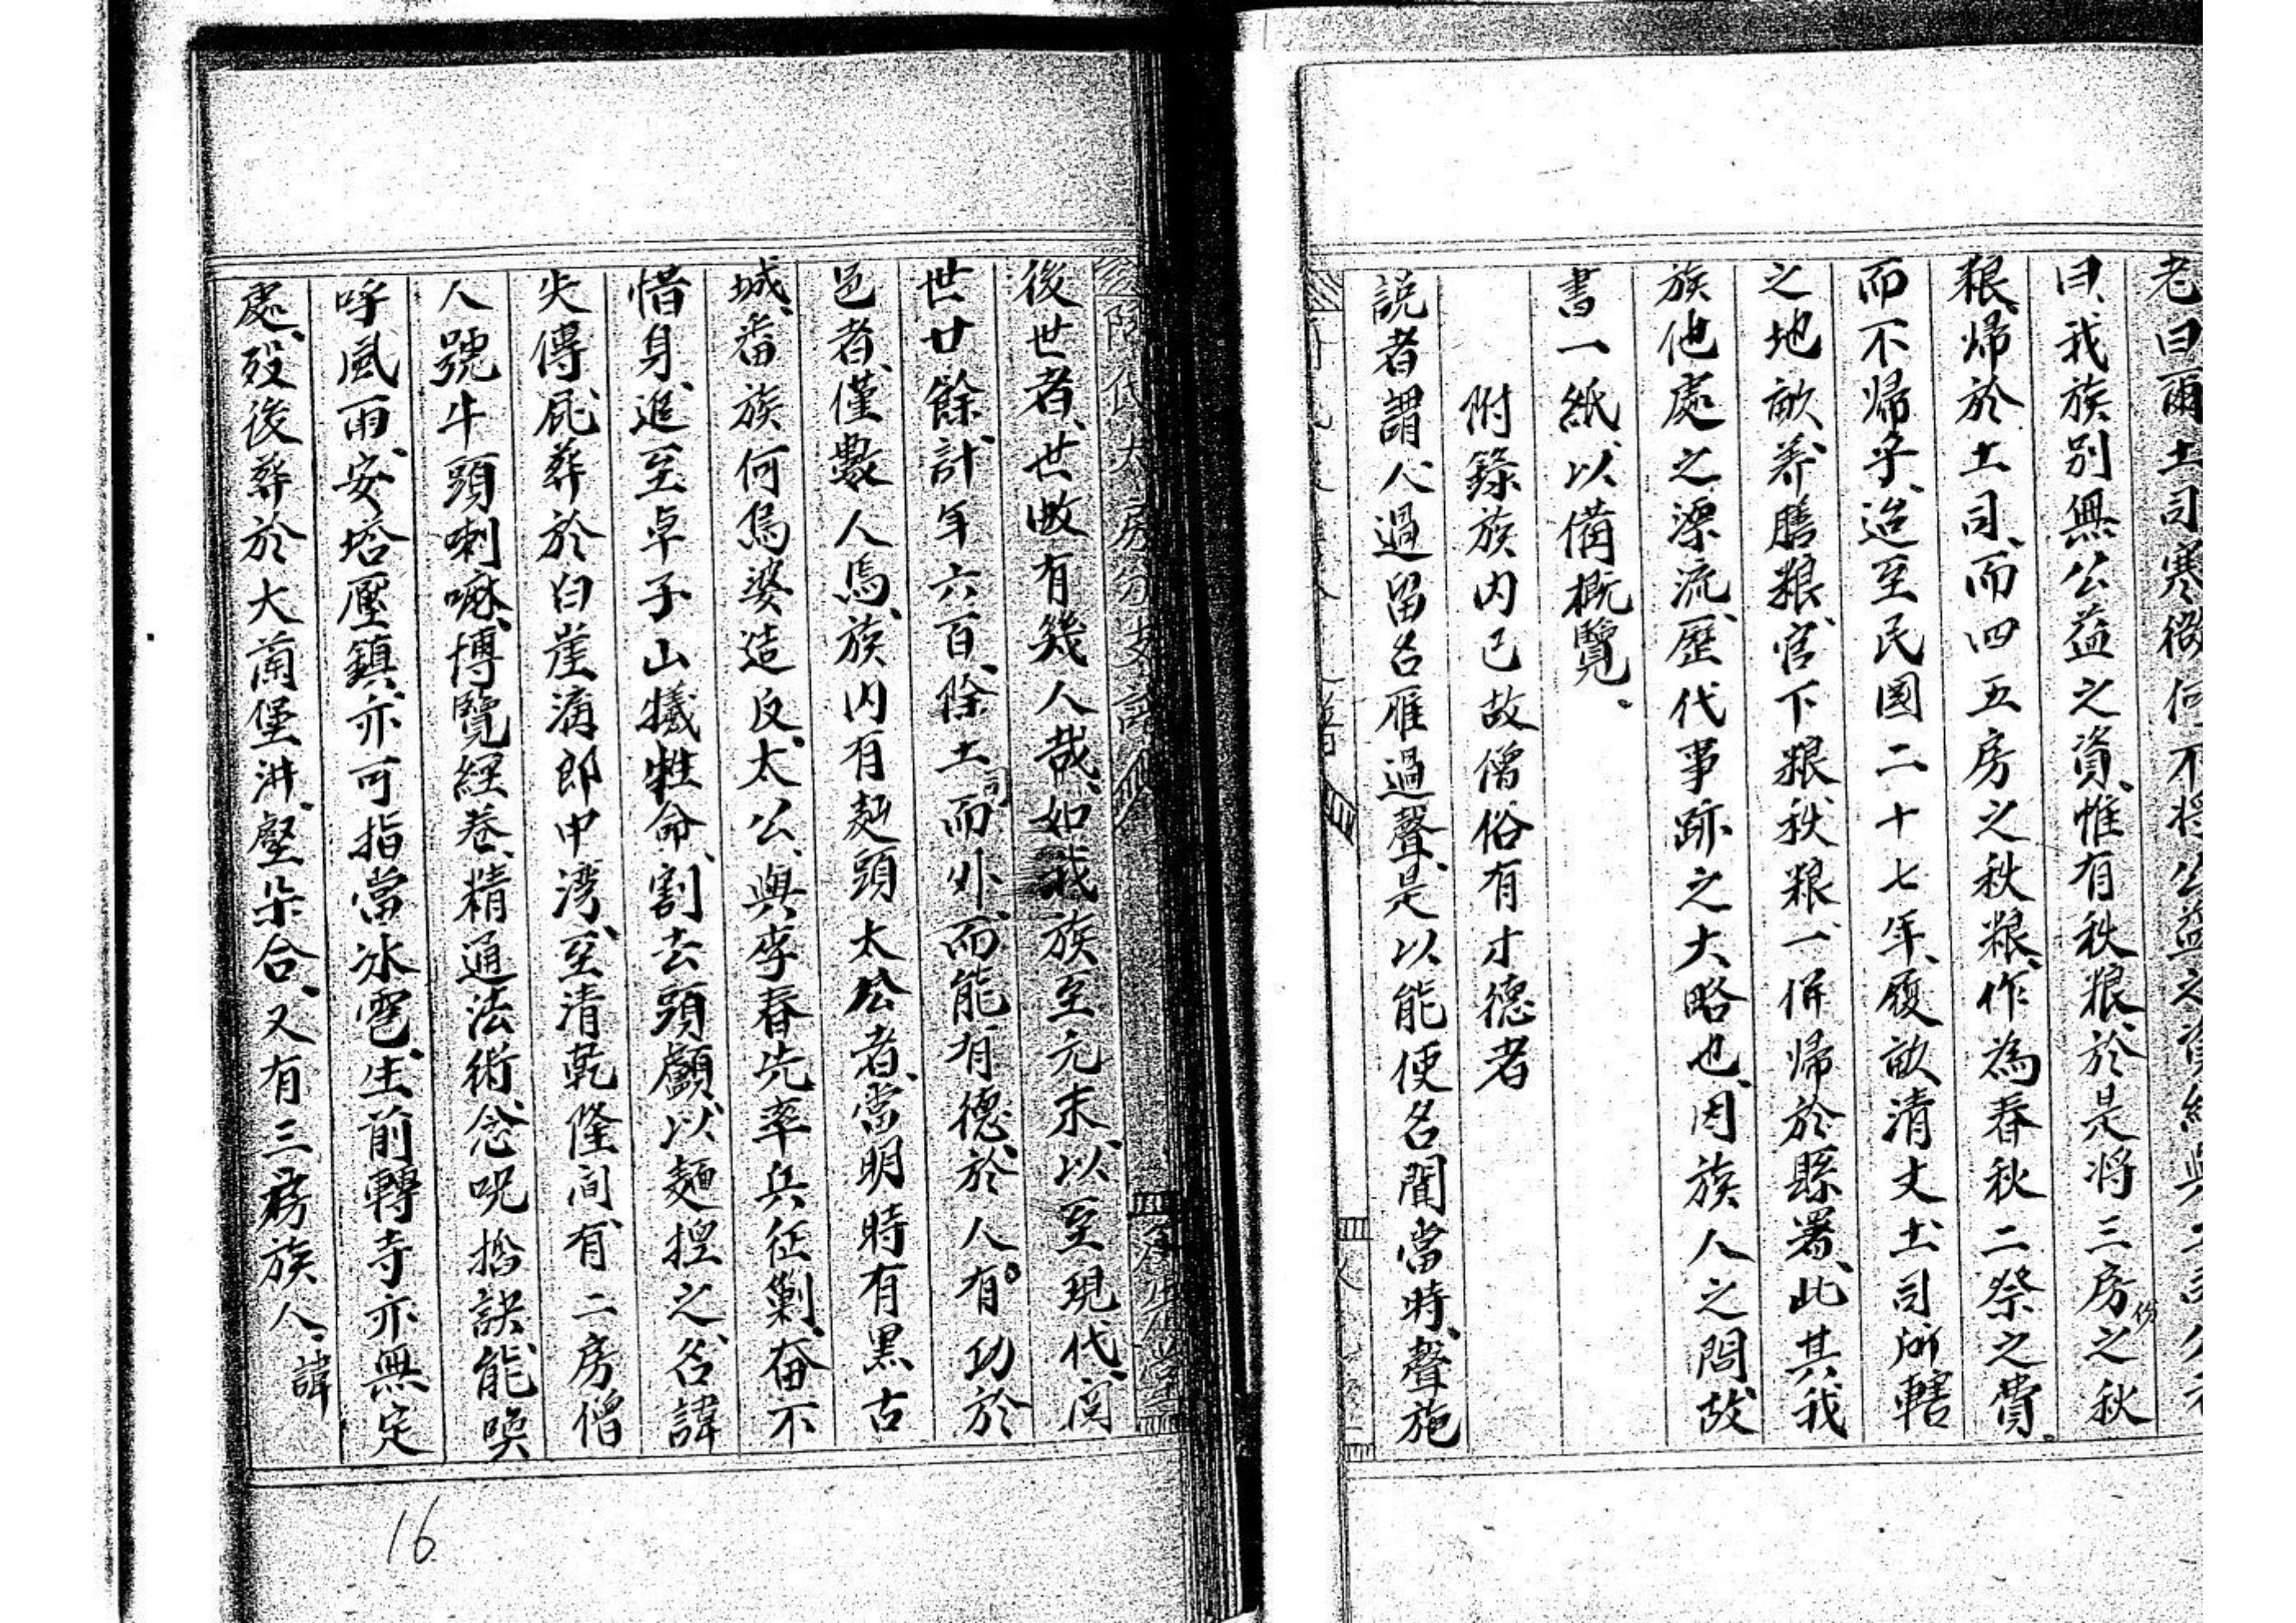 老曰爾土司寒微何不將公益之資
曰、我族別無公益之資、惟有秋粮、於是將三房份之秋
粮、歸於土司、而四五房之秋粮、作為春秋二祭之費。
而不歸乎、迨至民國二十七年、履畝清丈土司所轄
之地畝、养膳粮、官下粮秋粮一併歸於縣署、此其我
族他處之漂流、歷代事跡之大略也、因族人之問故
書一紙、以備概覽。
附錄族内已故僧俗有才德者
説者謂人過留名雁過聲、是以能使名聞當時、聲施
後世者、世畝有幾人哉、如我族至元末、以至現代、閲
世廿餘、計年六百、除土司而外、而能有德、於人有功於
邑者、僅數人焉、族内有麺頭太公者、當明時有黑古
城、番族何烏婆造反、太公、與李春先率兵征剿、奋不
惜身、追至卓子山犧牲命、割去頭顱、以麺捏之、名諱
失傳、屍葬於白崖溝郎中湾、至清乾隆间、有二房僧
人號牛頭喇嘛、博覽經卷、精通法術、念呪掐訣、能喚
呼風雨、安塔壓鎮、亦可指當冰雹、生前轉寺亦無定
處、歿後葬於大菛堡洪、壑朵合、又有三房族人、諱
16